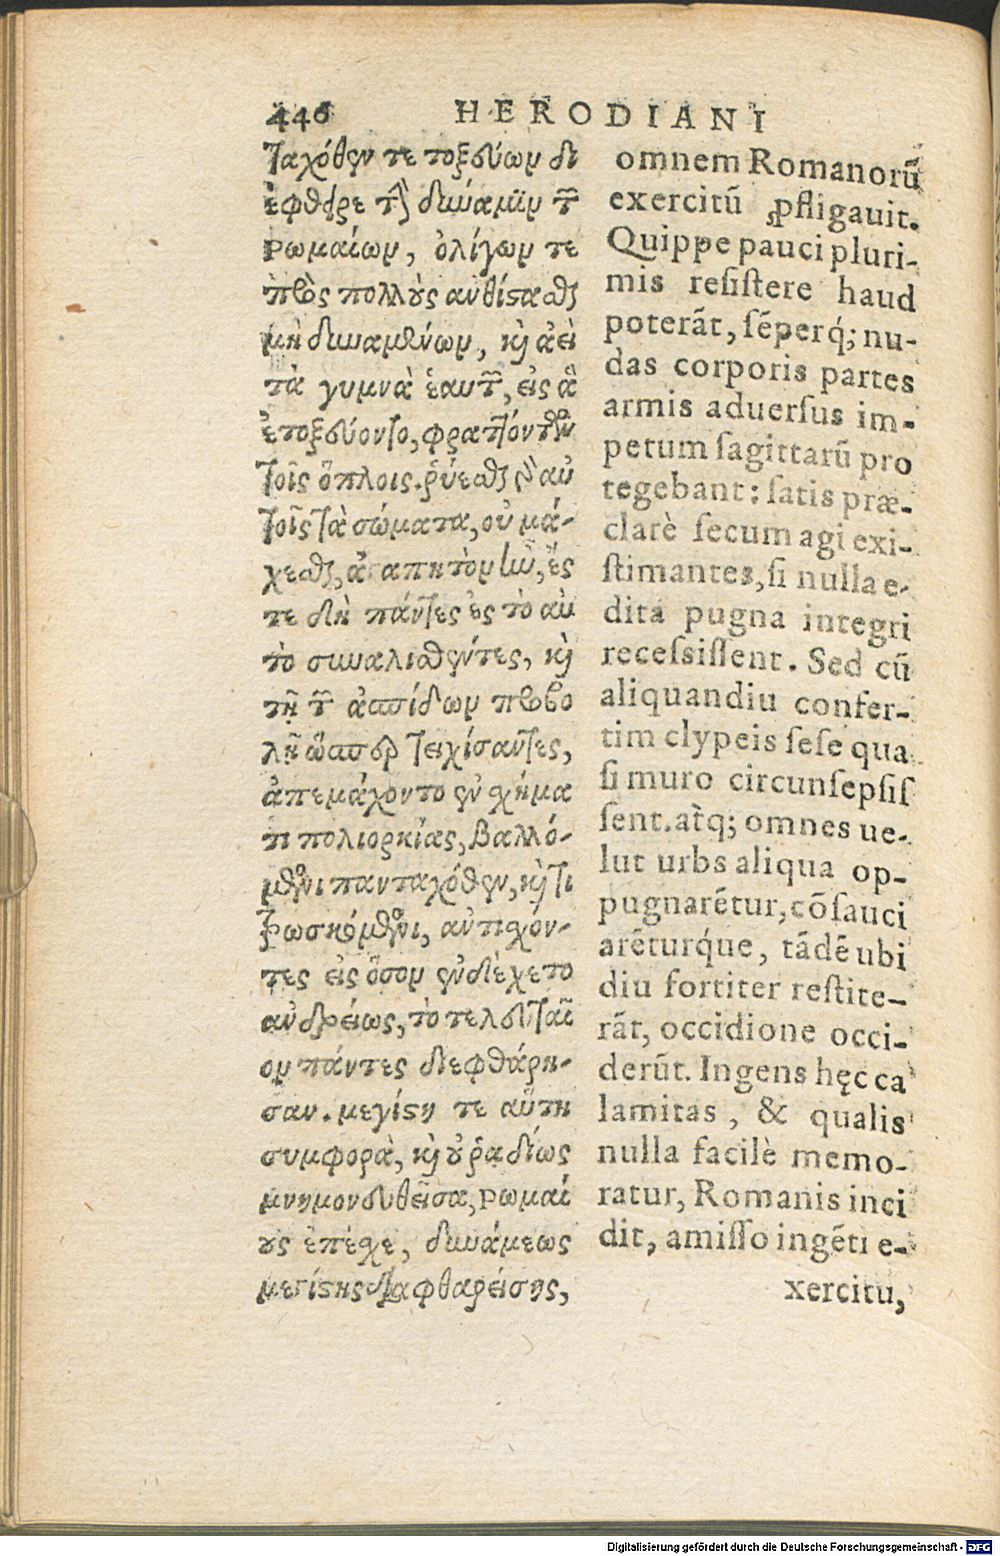 446 HERODIANI
ταχόθεν τε τοξεύων δι
έφθειρε τὴν δύναμιν τῶν
ρωμαίων, ὀλίγων τε
πρὸς πολλοὺς ἀνθίστασθαι
μὴ δυναμένων, καὶ ἀεὶ
τὰ γυμνὰ ἑαυτῶν, εἰς ἃ
ἐτοξεύοντο, φραττόντων
τοῖς ὅπλοις. ῥύεσθαι γὰρ αὐ
τοῖς τὰ σώματα, οὐ μά-
χεσθαι, ἀγαπητὸν ἦν, ἔς
τε δὴ πάντες ἐς τὸ αὐ
τὸ συναλισθέντες, καὶ
τῇ τῶν ἀσπίδων προβο
λῇ ὥσπερ τειχίσαντες,
ἀπεμάχοντο ἐν σχήμα
τι πολιορκίας, βαλλό-
μενοι πανταχόθεν, καὶ τι
τρωσκόμενοι, ἀντισχόν-
τες εἰς ὅσον ἐνεδέχετο
ἀνδρείως, τὸ τελευταῖ
ον πάντες διεφθάρη-
σαν. μεγίστη τε αὕτη
συμφορὰ, καὶ οὐ ῥᾳδίως
μνημονευθεῖσα, ρωμαί
ους ἐπέσχε, δυνάμεως
μεγίστης διαφθαρείσης,
omnem Romanorū
exercitū ꝓfligauit.
Quippe pauci pluri-
mis reſiſtere haud
poterāt, ſēperq́; nu-
das corporis partes
armis aduerſus im-
petum ſagittarū pro
tegebant: ſatis præ-
clarè ſecum agi exi-
ſtimantes, ſi nulla e-
dita pugna integri
receſsiſſent. Sed cū
aliquandiu confer-
tim clypeis ſeſe qua
ſi muro circunſepſiſ
ſent. atq̀; omnes ue-
lut urbs aliqua op-
pugnarētur, cōſauci
arēturq́ue, tādē ubi
diu fortiter reſtite-
rāt, occidione occi-
derūt. Ingens hęc ca
lamitas, & qualis
nulla facilè memo-
ratur, Romanis inci
dit, amiſſo ingēti e-
xercitu,
Digitalisierung gefördert durch die Deutsche Forschungsgemeinschaft - DFG